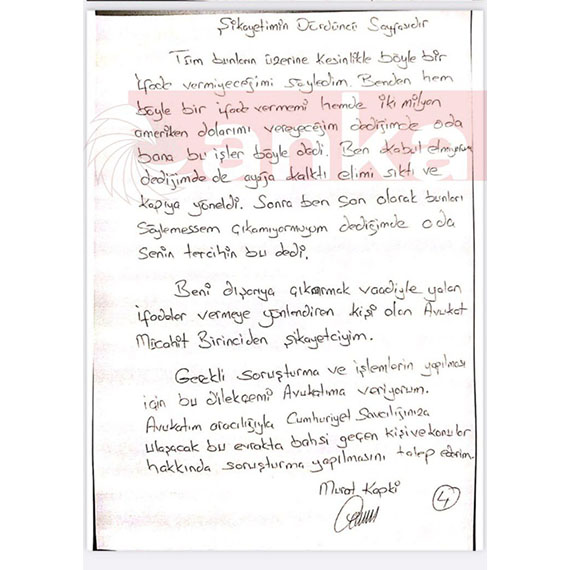 Şikayetimin Dördüncü Sayfasıdır
Tüm bunların üzerine kesinlikle böyle bir
ifade vermiyeceğimi söyledim. Benden hem
böyle bir ifade vermemi hemde iki milyon
ameriken dolarımı vereyeceğim dediğimde oda
bana bu işler böyle dedi. Ben kabul etmiyorum
dediğimde de ayağa kalktı elimi sıktı ve
kapıya yöneldi. Sonra ben son olarak bunları
Söylemessem çıkamıyormuyum dediğimde oda
Senin tercihin bu dedi.
Beni dışarıya çıkarmak vaadiyle yalan
ifadeler vermeye yönlendiren kişi olan Avukat
Mücahit Birinciden şikayetciyim.
Gerekli soruşturma ve işlemlerin yapılması
için bu dilekçemi Avukatıma veriyorum.
Avukatım aracılığıyla Cumhuriyet Savcılığımıza
ulaşacak bu evrakta bahsi geçen kişi ve konular
hakkında soruşturma yapılmasını talep ederim.
Murat Kapki
4
anka